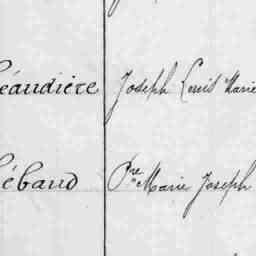 éaudière Joseph Louis Marie
ébaud Pre Marie Joseph